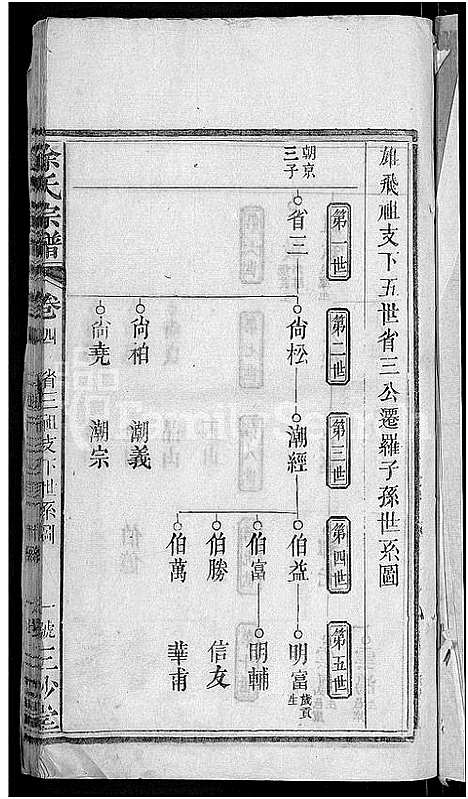 雄飛祖支下五世省三公遷羅子孫世系圖
第一世
第二世
第三世
第四世
第五世
朝京
三子
省三
尙松
潮經
伯益
明富
歲貢
生
伯富
明輔
伯勝
信友
伯萬
華甫
尙柏
潮義
尙堯
潮宗
徐氏宗譜
卷四
省三祖支下世系圖
一號